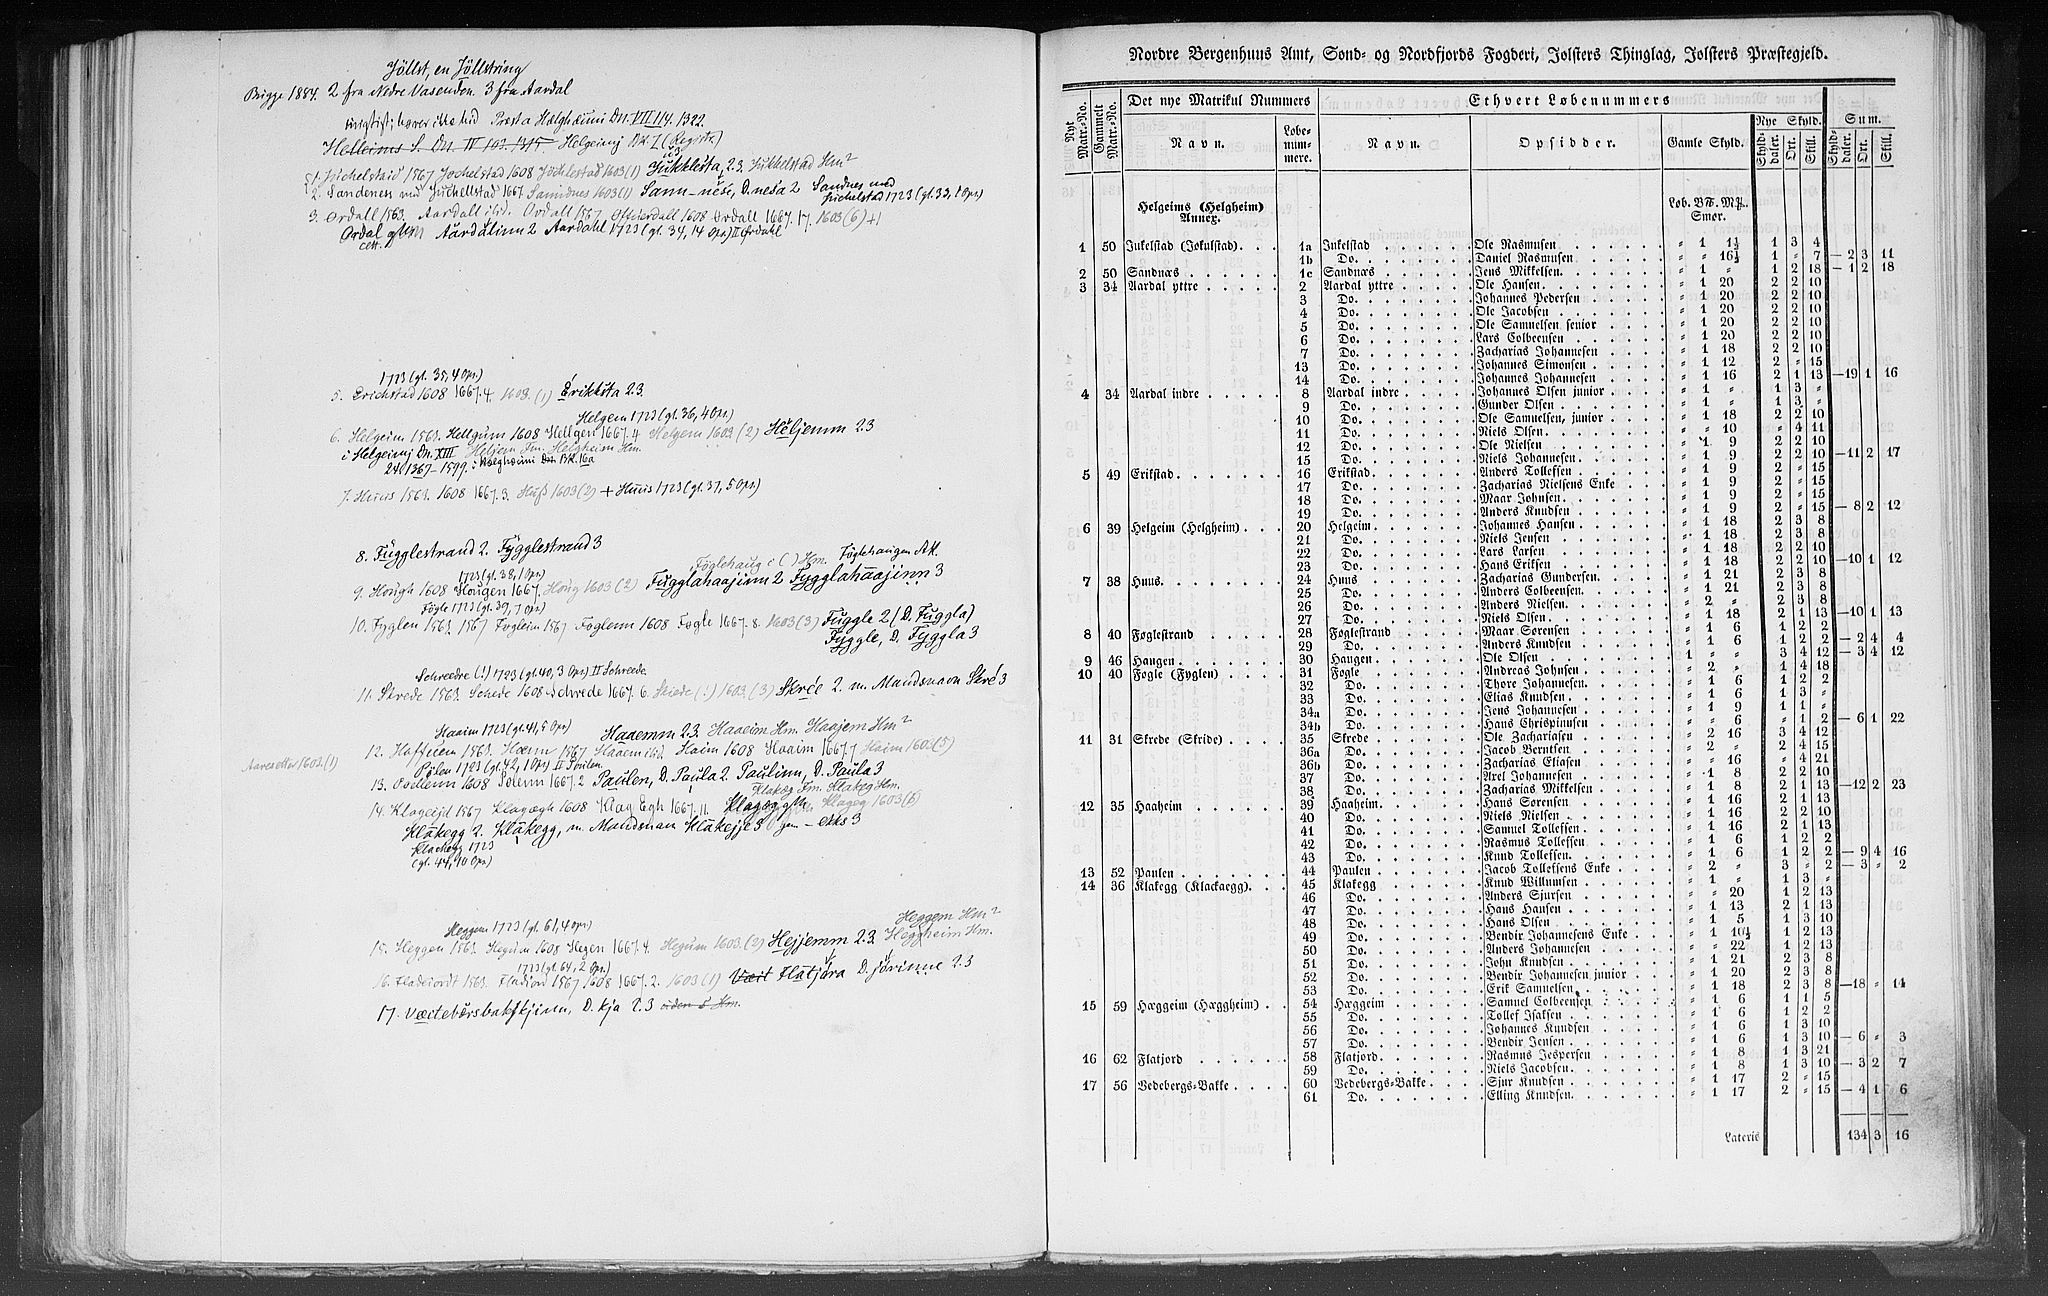 Jöllst, en Jöllstring
Brigge 1884. 2 fra Nedre Vasenden. 3 fra Aardal
urigtigt; hører ikke hid Præsta Hælghæimi Dn. VII 114. 1322.
Helleims S. Dn. IV 102. 1315. Helgeimj BK
1. Jichelstad 1567 Jochelstad 1608 Jöchlestad 1603 (1) Jukklésta, 2.3. Jukkelstad Hm²
2. Sandenes 1667. Sanndnes 1603 (1) Sann-nése, D. nesa 2 Sandnes med
Juchelstad 1723 (gl. 33, 1 Opn)
3. Ordall 1563. Aardall ibid. Ordall 1567 Ordall 1667. 17. 1603 (6) +1
Aardalinn 2 Aardahl 1723 (gl. 34, 14 Opn) II Ørdahl
1723 (gl. 35, 4 Opn)
5. Erichstad 1608 1667. 4. 1603. (1) Erikksta 2.3.
Helgem 1723 (gl. 36, 4 Opn)
6. Helgeim 1563. Hellgum 1608 Hellgen 1667. 4 Helgem 1603 (2) Heljemm 2.3
i Helgeimj Dn. XIII Heljem Fm. Helgheim Hm.
24. 1367-1399. i Hælghæimi BK. 16a
7. Huus 1563. 1608 1667. 3. Huß 1603 (2) + Huus 1723 (gl. 37, 5 Opn)
8. Fugglestrand 2. Fygglestrand 3
1723 (gl. 38, 1 Opn) Föglehaug i ( ) Hm. Föglehaugen AK.
9. Hough 1608 Hougen 1667. Houg 1603 (2) Fugglahaajinn 2 Fygglahaajinn 3
Føgle 1723 (gl. 39, 7 Opn)
10. Fyglen 1563. 1567 Fogleim 1567 Foglenn 1608 Fogle 1667. 8. 1603 (3) Fuggle 2 (D. Fuggla)
Fyggle, D. Fyggla 3
Schreedre (!) 1723 (gl. 40, 3 Opn) II Schreede
11. Skrede 1563. Schede 1608 Schrede 1667. 6. Skiede (!) 1603. (3) Skrée 2. m. Mandsnavn Skré 3
Haaim 1723 (gl. 41, 5 Opn) Haaemm 2.3. Haaeim Hm. Haajem Hm²
12. Haffueem 1563. Hæem 1567 Haaem ibid. Haim 1608 Haaim 1667. 7 Haim 1603 (5)
Aaresetter 1603. (1)
Pölen 1723 (gl. 42, 1 Opn) II Poulen.
13. 1608 Polenn 1667. 2 Paulen, D. Paula 2 Paulinn, D. Paula 3
Klakæg Fm. Klakeg Hm.
14. Klageeid 1567 Klagægh 1608 Klag Egh 1667. 11. Klageg 1603 (6)
Klakegg 2. Klakegg, m. Mandsnavn Klakejje 3
Klackegg 1723
(gl. 44, 10 Opn)
Heggem 1723 (gl. 61, 4 Opn) Heggem Hm²
15. Heggen 1563. Hegum 1608 Hegen 1667. 4. Hegum 1603. (2) Hejjemm 2.3. Heggheim Hm.
1723 (gl. 64, 2 Opn)
16. Fladeiordt 1563. Fladiord 1567 1608 1667. 2. 1603 (1) Flatjöra D. jörinne 2.3
17. Væitebærsbakkjinn, D. kja 2.3
Nordre Bergenhuus Amt, Sond- og Nordfjords Fogderi, Jolsters Thinglag, Jolsters Præstegjeld.
Nyt Matr.-No. Gammelt Matr.-No. Det nye Matrikul Nummers Ethvert Løbenummers
Nye Skyld. Sum.
Navn. Løbenummere. Navn. Opsidder. Gamle Skyld. Skylddaler. Ort. Skill. Skylddaler. Ort. Skill.
Helgeims (Helgheim) Løb. B℔. M℔.
Annex. Smør.
1 50 Jukelstad (Jokulstad). 1a Jukelstad Ole Rasmusen " 1 1½ 1 3 4
1b Do. Daniel Rasmusen " " 16½ 1 " 7 — 2 3 11
2 50 Sandnæs 1c Sandnæs Jens Mikkelsen. " 1 " 1 2 18 — 1 2 18
3 34 Aardal yttre 2 Aardal yttre Ole Hansen " 1 20 2 2 10
3 Do. Johannes Pedersen " 1 20 2 2 10
4 Do. Ole Jacobsen " 1 20 2 2 10
5 Do. Ole Samuelsen senior " 1 20 2 2 10
6 Do. Lars Colbeensen " 1 20 2 2 10
7 Do. Zacharias Johannesen " 1 18 2 2 10
13 Do. Johannes Simonsen " 1 12 2 " 15
14 Do. Johannes Johannesen " 1 16 2 1 13 — 19 1 16
4 34 Aardal indre 8 Aardal indre Johannes Olsen junior " 1 " 1 3 "
9 Do. Gunder Olsen " 1 " 1 3 "
10 Do. Ole Samuelsen, junior " 1 18 2 2 10
11 Do. Niels Olsen " " 10 " 4 11
12 Do. Ole Nielsen " 1 9 2 2 10
15 Do. Niels Johannesen " 1 9 2 2 10 — 11 2 17
5 49 Erikstad 16 Erikstad Anders Tollefsen " 1 9 2 " 15
17 Do. Zacharias Nielsens Enke " 1 9 2 " 15
18 Do. Maar Johnsen " 1 9 2 " 15
19 Do. Anders Knudsen " 1 9 2 " 15 — 8 2 12
6 39 Helgeim (Helgheim) 20 Helgeim Johannes Hansen " 1 18 2 3 8
21 Do. Niels Jensen " 1 18 2 3 8
22 Do. Lars Larsen " 1 18 2 2 10
23 Do. Hans Eriksen " 1 18 2 2 10 — 10 1 12
7 38 Huus 24 Huus Zacharias Gundersen " 1 21 2 3 8
25 Do. Anders Colbeensen " 1 21 2 3 8
26 Do. Anders Nielsen " 2 " 2 3 8
27 Do. Niels Olsen " 1 18 2 1 13 — 10 1 13
8 40 Foglestrand 28 Foglestrand Maar Sørensen " 1 6 1 2 2
29 Do. Anders Knudsen " 1 6 1 2 2 — 2 4 4
9 46 Haugen 30 Haugen Ole Olsen 1 " " 3 4 12 — 3 4 12
10 40 Fogle (Fyglen) 31 Fogle Andreas Johnsen " 2 " 1 4 18
32 Do. Thore Johannesen " 1 6 1 2 2
33 Do. Elias Knudsen " 1 6 1 3 "
34a Do. Jens Johannesen " 1 9 1 1 "
34b Do. Hans Chrispinusen " " 6 " 1 2 — 6 1 22
11 31 Skrede (Skride) 35 Skrede Ole Zachariasen " 2 16 3 4 12
36a Do. Jacob Berntsen " 2 " 2 4 15
36b Do. Zacharias Eliasen " " 16 " 4 21
37 Do. Axel Johannesen " 1 8 2 2 10
38 Do. Zacharias Mikkelsen " 1 8 2 1 13 — 12 2 23
12 35 Haaheim 39 Haaheim Hans Sørensen " 1 16 2 1 13
40 Do. Niels Nielsen " 1 16 2 2 10
41 Do. Samuel Tollefsen " 1 16 2 1 13
42 Do. Rasmus Tollefsen " 1 6 1 2 2
43 Do. Knud Tollefsen " 1 6 1 2 2 — 9 4 16
13 52 Paulen 44 Paulen Jacob Tollefsens Enke " 2 " 3 " 2 — 3 " 2
14 36 Klakegg (Klackaegg) 45 Klakegg Knud Willumsen " 1 " 1 3 "
46 Do. Anders Sjursen " " 20 1 2 13
47 Do. Hans Hansen " 1 13 2 1 13
48 Do. Hans Olsen " 1 5 1 3 10
49 Do. Bendix Johannesens Enke " 1 10½ 1 2 13
50 Do. Anders Johannesen " " 22 1 2 13
51 Do. John Knudsen " 1 21 2 3 8
52 Do. Bendix Johannesen junior " 1 20 2 3 8
53 Do. Erik Samuelsen " 1 18 2 3 8 — 18 " 14
15 59 Hæggeim (Hæggheim) 54 Hæggeim Samuel Colbeensen " 1 6 1 1 5
55 Do. Tollef Isaksen " 1 6 1 2 2
56 Do. Johannes Knudsen " 1 6 1 3 10
57 Do. Bendix Jensen " 1 6 1 3 10 — 6 " 3
16 62 Flatjord 58 Flatjord Rasmus Jespersen " 1 8 1 3 21
59 Do. Niels Jacobsen " 1 8 1 3 10 — 3 2 7
17 56 Vedebergs-Bakke 60 Vedebergs-Bakke Sjur Knudsen " 1 17 2 " 15
61 Do. Elling Knudsen " 1 17 2 " 15 — 4 1 6
Lateris 134 3 16